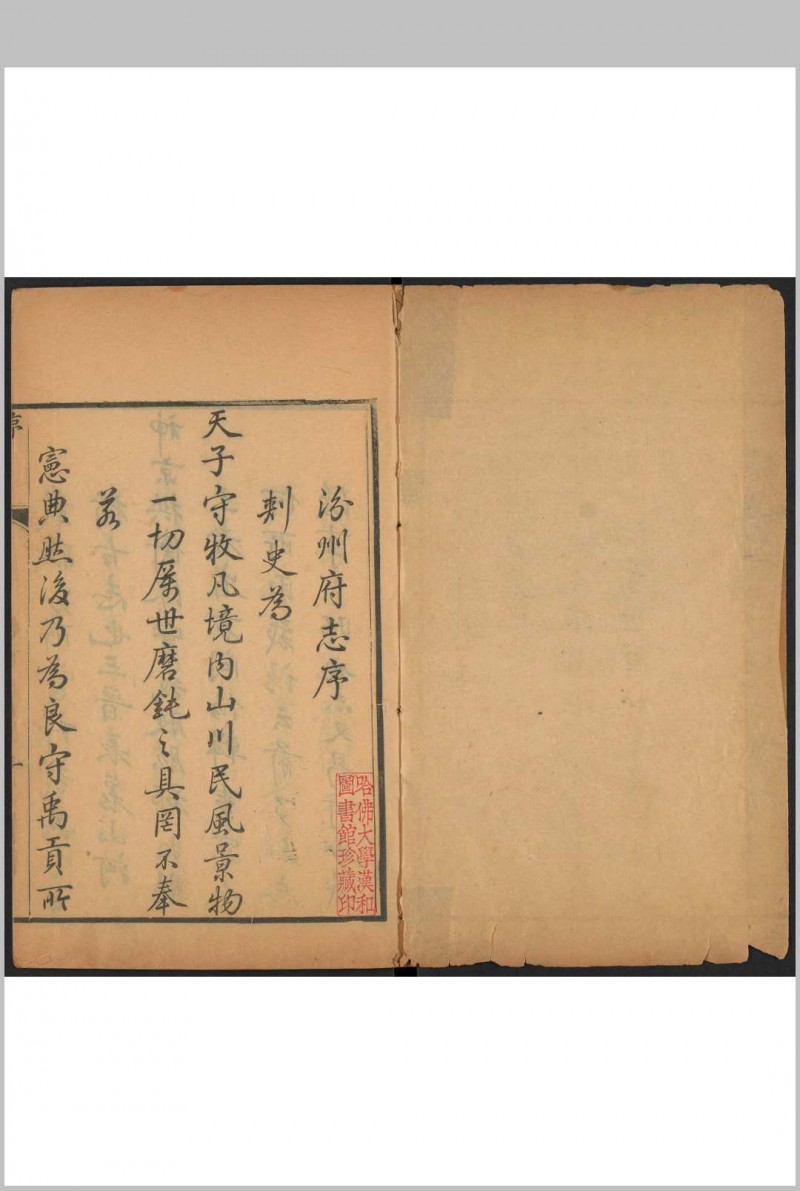 汾州府志序
刺史為
天子守牧凡境内山川民風景物
一切厲世磨鈍之具罔不奉
若
憲典然後乃為良守禹貢所
序
一
哈佛大學漢和
圖書館珍藏印